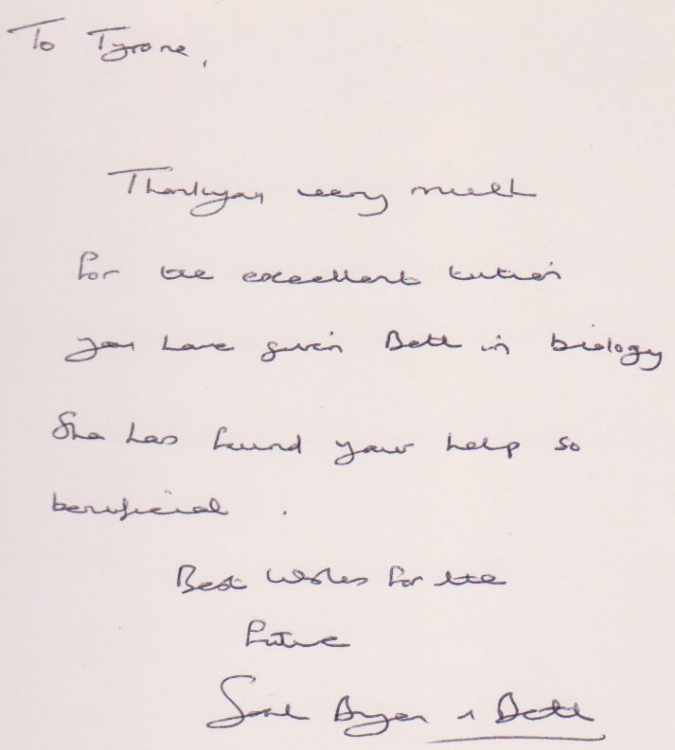 To Tyrone,
Thankyou very much
for the excellent tution
you have given Beth in biology
She has found your help so
beneficial .
Best Wishes for the
future
& Beth